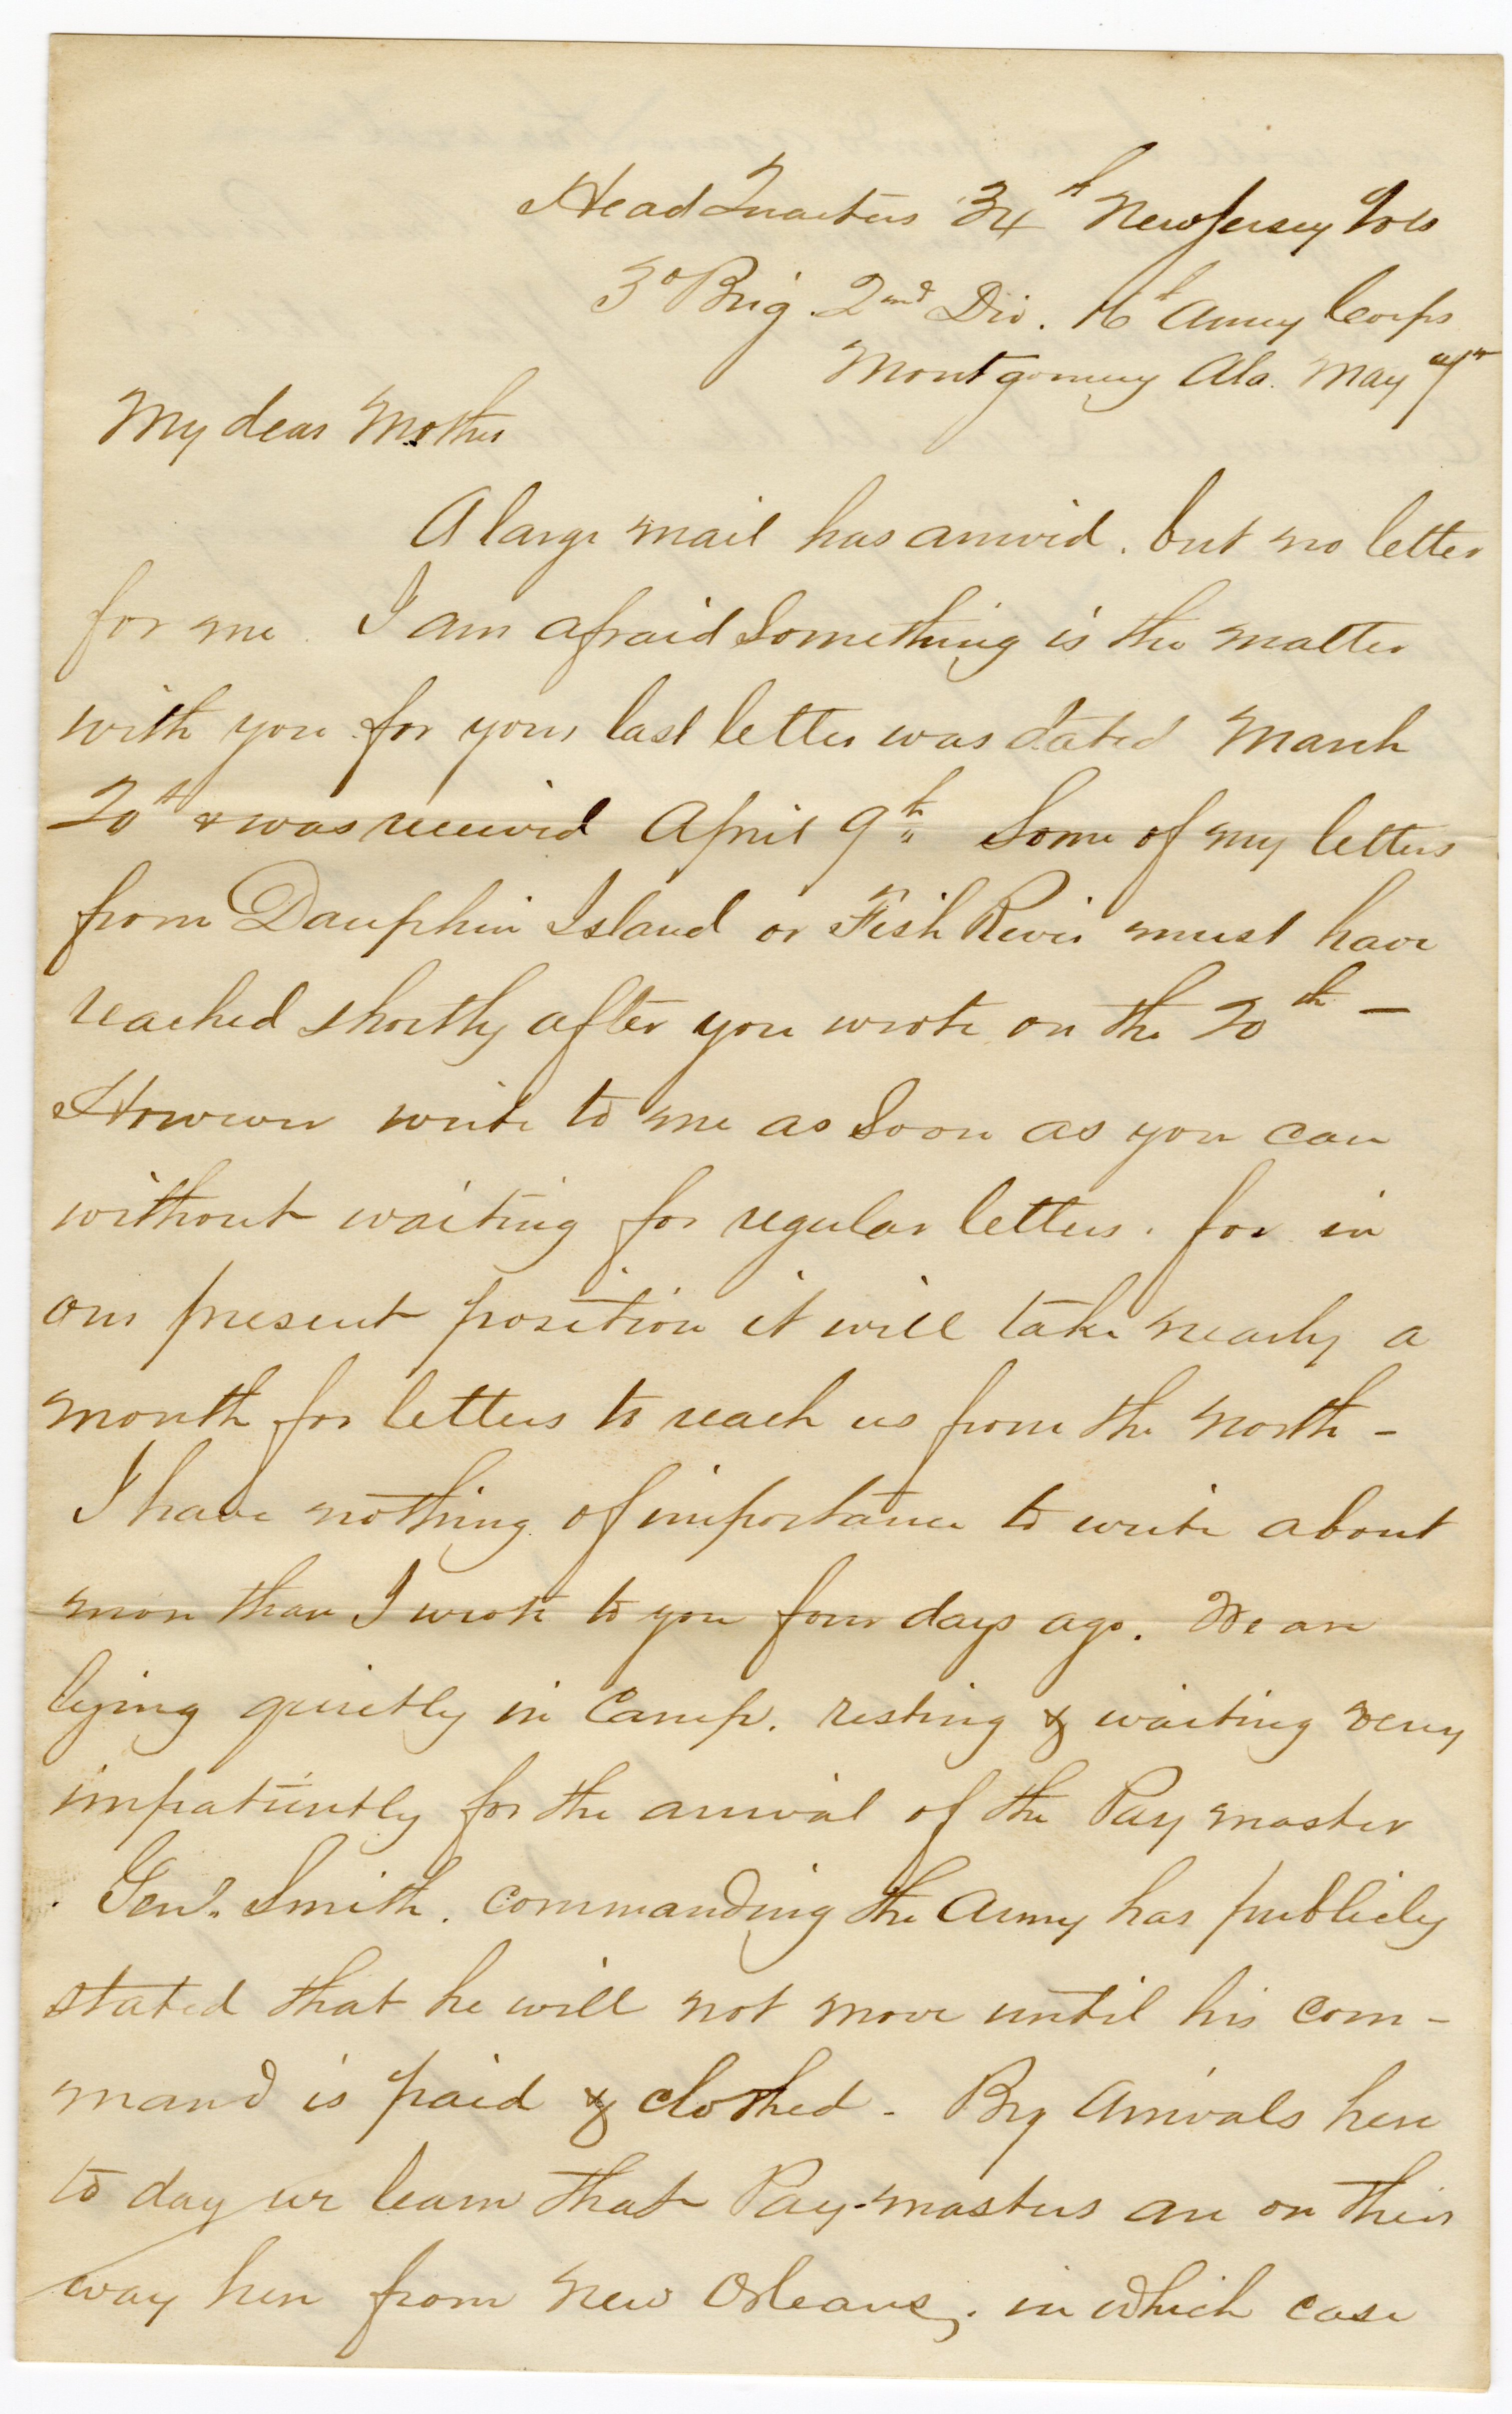 Head Quarters 34th New Jersey Vols
3d Brig. 2nd Div. 16th Army Corps
Montgomery Ala. May 7th
My dear Mother
A large mail has arrived. but no letter
for me. I am afraid Something is the matter
with you for your last letter was dated March
20th & was received April 9th Some of my letters
from Dauphin Island or Fish River must have
reached shortly after you wrote on the 20th –
However write to me as Soon as you can
without waiting for regular letters. for in
our present position it will take nearly a
month for letters to reach us from the north –
I have nothing of importance to write about
more than I wrote to you four days ago. We are
lying quietly in Camp. resting & waiting very
impatiently for the arrival of the Pay master
. Genl. Smith. commanding the Army has publicly
stated that he will not move until his com-
mand is paid & clothed – By Arrivals here
to day we learn that Pay-masters are on their
way here from New Orleans, in which case